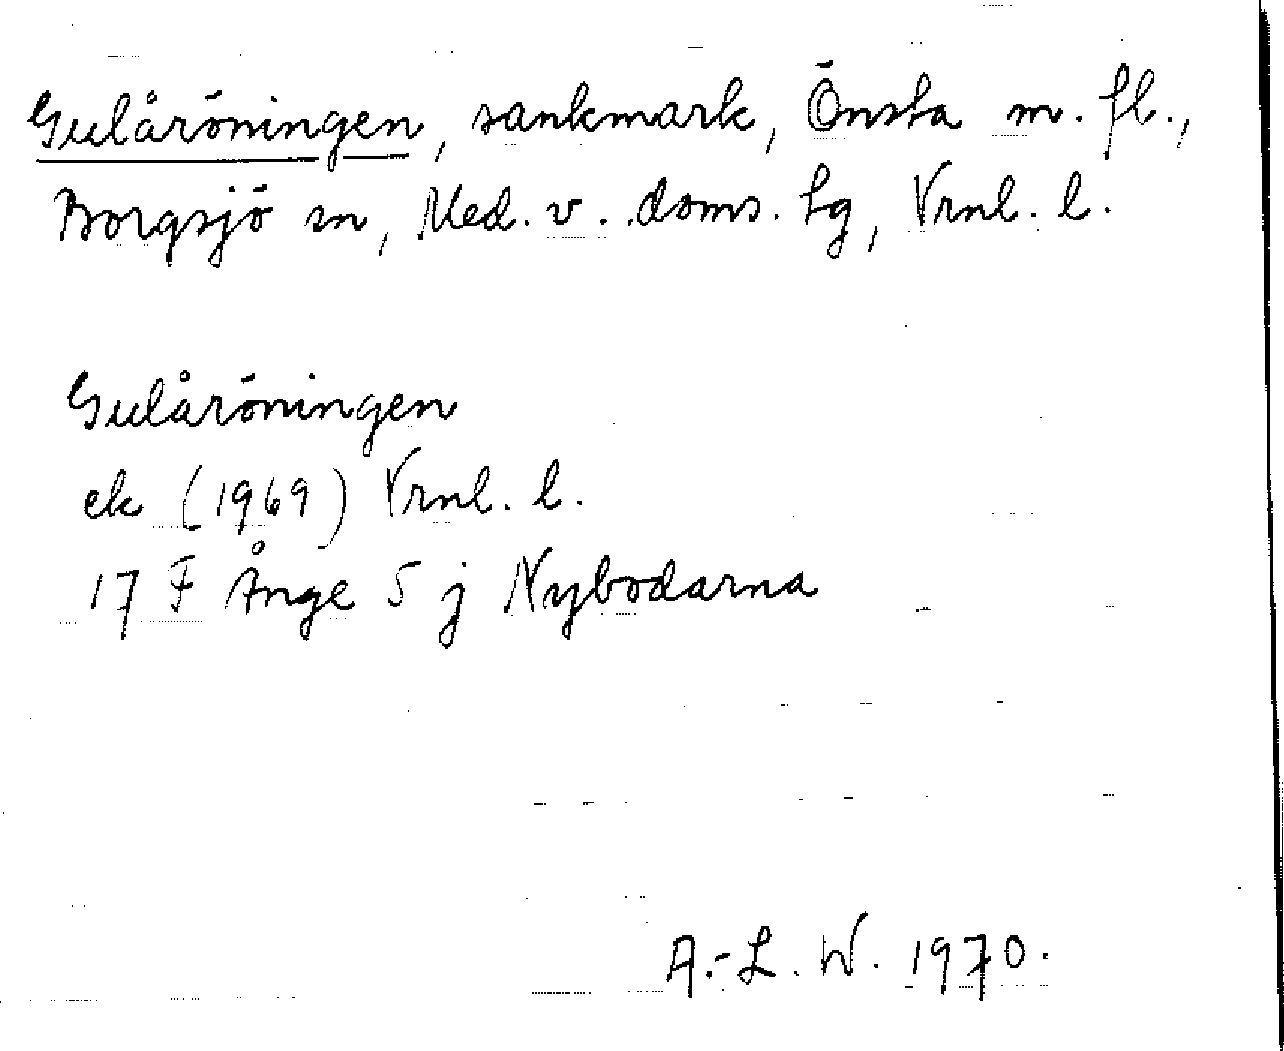 Gulåröningen, sankmark, Önsta m. fl.,
Borgsjö sn, Med. v. doms. tg, Vrnl. l.
Gulåröningen
ek (1969) Vrnl. l.
17 F Ånge 5 j Nybodarna
A.-L. W. 1970.